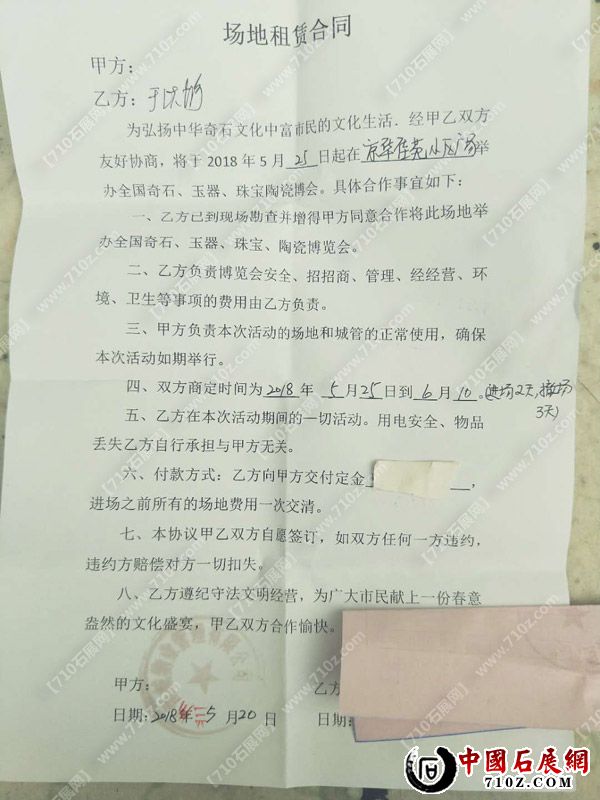 场地租赁合同
甲方：
乙方：
为弘扬中华奇石文化中富市民的文化生活．经甲乙双方
友好协商，将于2018年5月25日起在京华佳苑小区广场举
办全国奇石、玉器、珠宝陶瓷博会。具体合作事宜如下：
一、乙方已到现场勘查并增得甲方同意合作将此场地举
办全国奇石、玉器、珠宝、陶瓷博览会。
二、乙方负责博览会安全、招招商、管理、经经营、环
境、卫生等事项的费用由乙方负责。
三、甲方负责本次活动的场地和城管的正常使用，确保
本次活动如期举行。
四、双方商定时间为2018年5月25日到6月10。(进场2天，撤场
3天)
五、乙方在本次活动期间的一切活动。用电安全、物品
丢失乙方自行承担与甲方无关。
六、付款方式：乙方向甲方交付定金，
进场之前所有的场地费用一次交清。
七、本协议甲乙双方自愿签订，如双方任何一方违约，
违约方赔偿对方一切扣失。
八、乙方遵纪守法文明经营，为广大市民献上一份春意
盎然的文化盛宴，甲乙双方合作愉快。
甲方：
乙
日期：2018年5月20日
日期：
【710石展网】
www.710z.com
中國石展網
710Z.COM